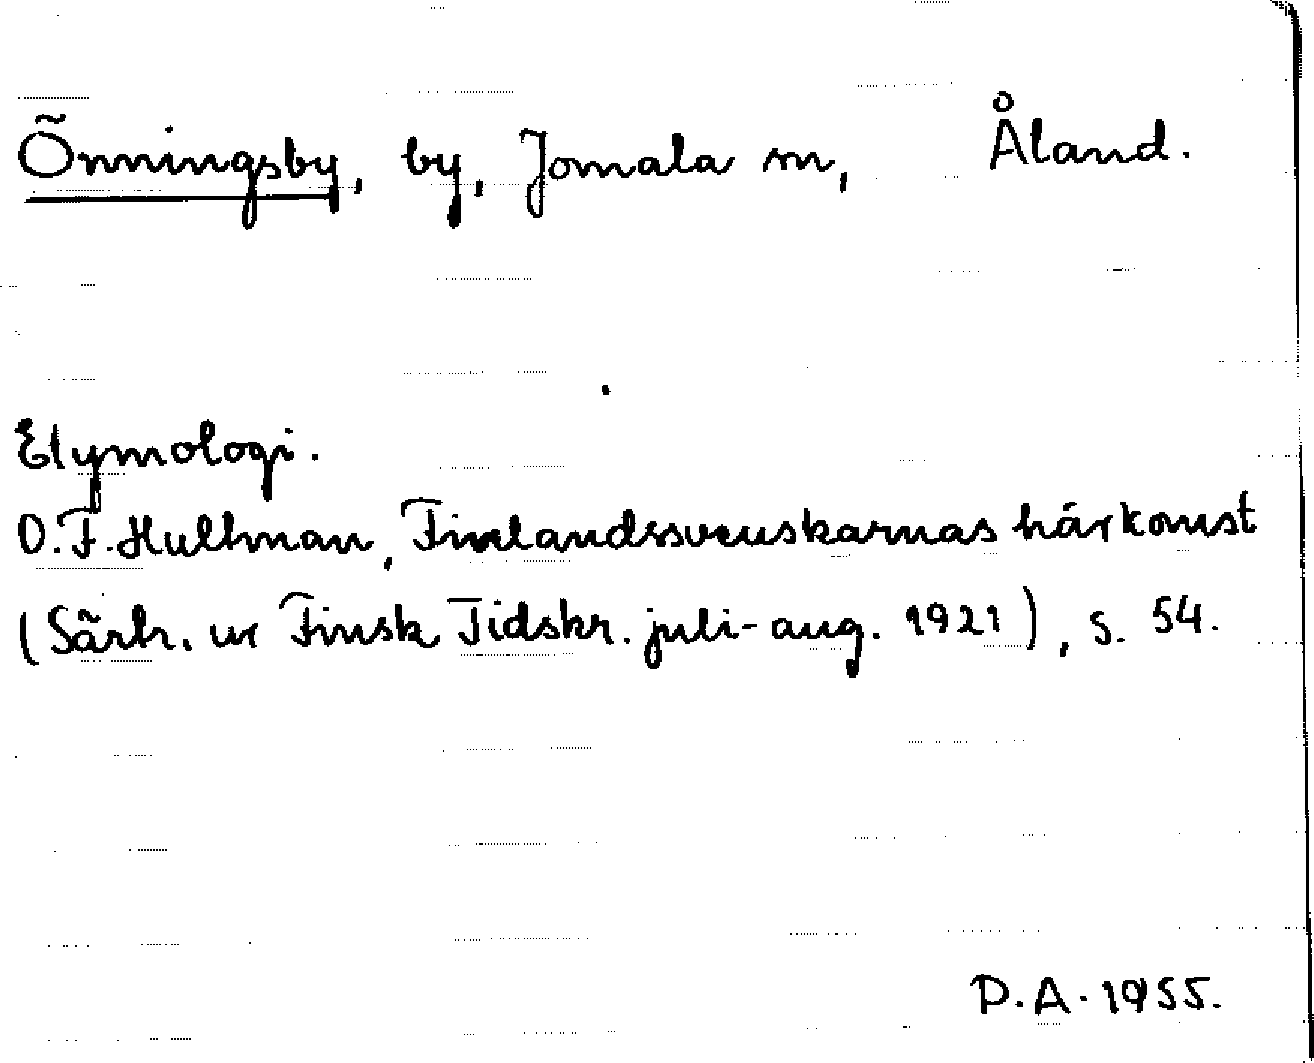 Önningsby, by, Jomala sn, Åland.
Etymologi.
O.F. Hultman, Finlandssvenskarnas härkomst
(Särtr. ur Finsk Tidskr. juli-aug. 1921), s. 54.
P.A. 1955.